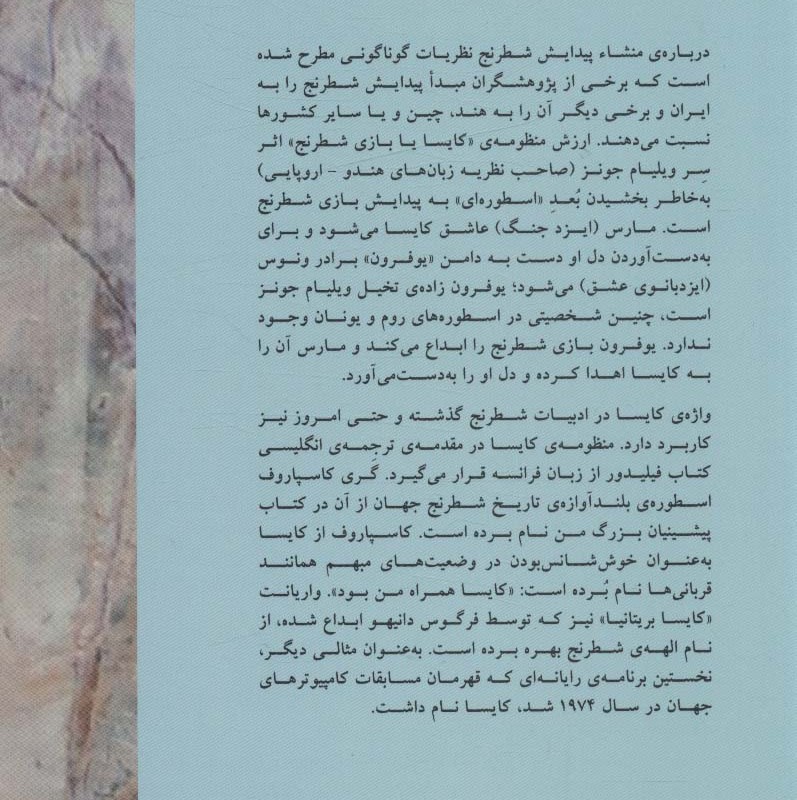 درباره‌ی منشاء پیدایش شطرنج نظریات گوناگونی مطرح شده
است که برخی از پژوهشگران مبدأ پیدایش شطرنج را به
ایران و برخی دیگر آن را به هند، چین و یا سایر کشورها
نسبت می‌دهند. ارزش منظومه‌ی «کایسا یا بازی شطرنج» اثر
سِر ویلیام جونز (صاحب نظریه زبان‌های هندو - اروپایی)
به‌خاطر بخشیدن بُعدِ «اسطوره‌ای» به پیدایش بازی شطرنج
است. مارس (ایزد جنگ) عاشق کایسا می‌شود و برای
به‌دست‌آوردن دل او دست به دامن «یوفرون» برادر ونوس
(ایزدبانوی عشق) می‌شود؛ یوفرون زاده‌ی تخیل ویلیام جونز
است، چنین شخصیتی در اسطوره‌های روم و یونان وجود
ندارد. یوفرون بازی شطرنج را ابداع می‌کند و مارس آن را
به کایسا اهدا کرده و دل او را به‌دست‌می‌آورد.
واژه‌ی کایسا در ادبیات شطرنج گذشته و حتی امروز نیز
کاربرد دارد. منظومه‌ی کایسا در مقدمه‌ی ترجمه‌ی انگلیسی
کتاب فیلیدور از زبان فرانسه قرار می‌گیرد. گَری کاسپاروف
اسطوره‌ی بلندآوازه‌ی تاریخ شطرنج جهان از آن در کتاب
پیشینیان بزرگ من نام برده است. کاسپاروف از کایسا
به‌عنوان خوش‌شانس‌بودن در وضعیت‌های مبهم همانند
قربانی‌ها نام بُرده است: «کایسا همراه من بود». واریانت
«کایسا بریتانیا» نیز که توسط فرگوس دانیهو ابداع شده، از
نام الهه‌ی شطرنج بهره برده است. به‌عنوان مثالی دیگر،
نخستین برنامه‌ی رایانه‌ای که قهرمان مسابقات کامپیوترهای
جهان در سال ۱۹۷۴ شد، کایسا نام داشت.